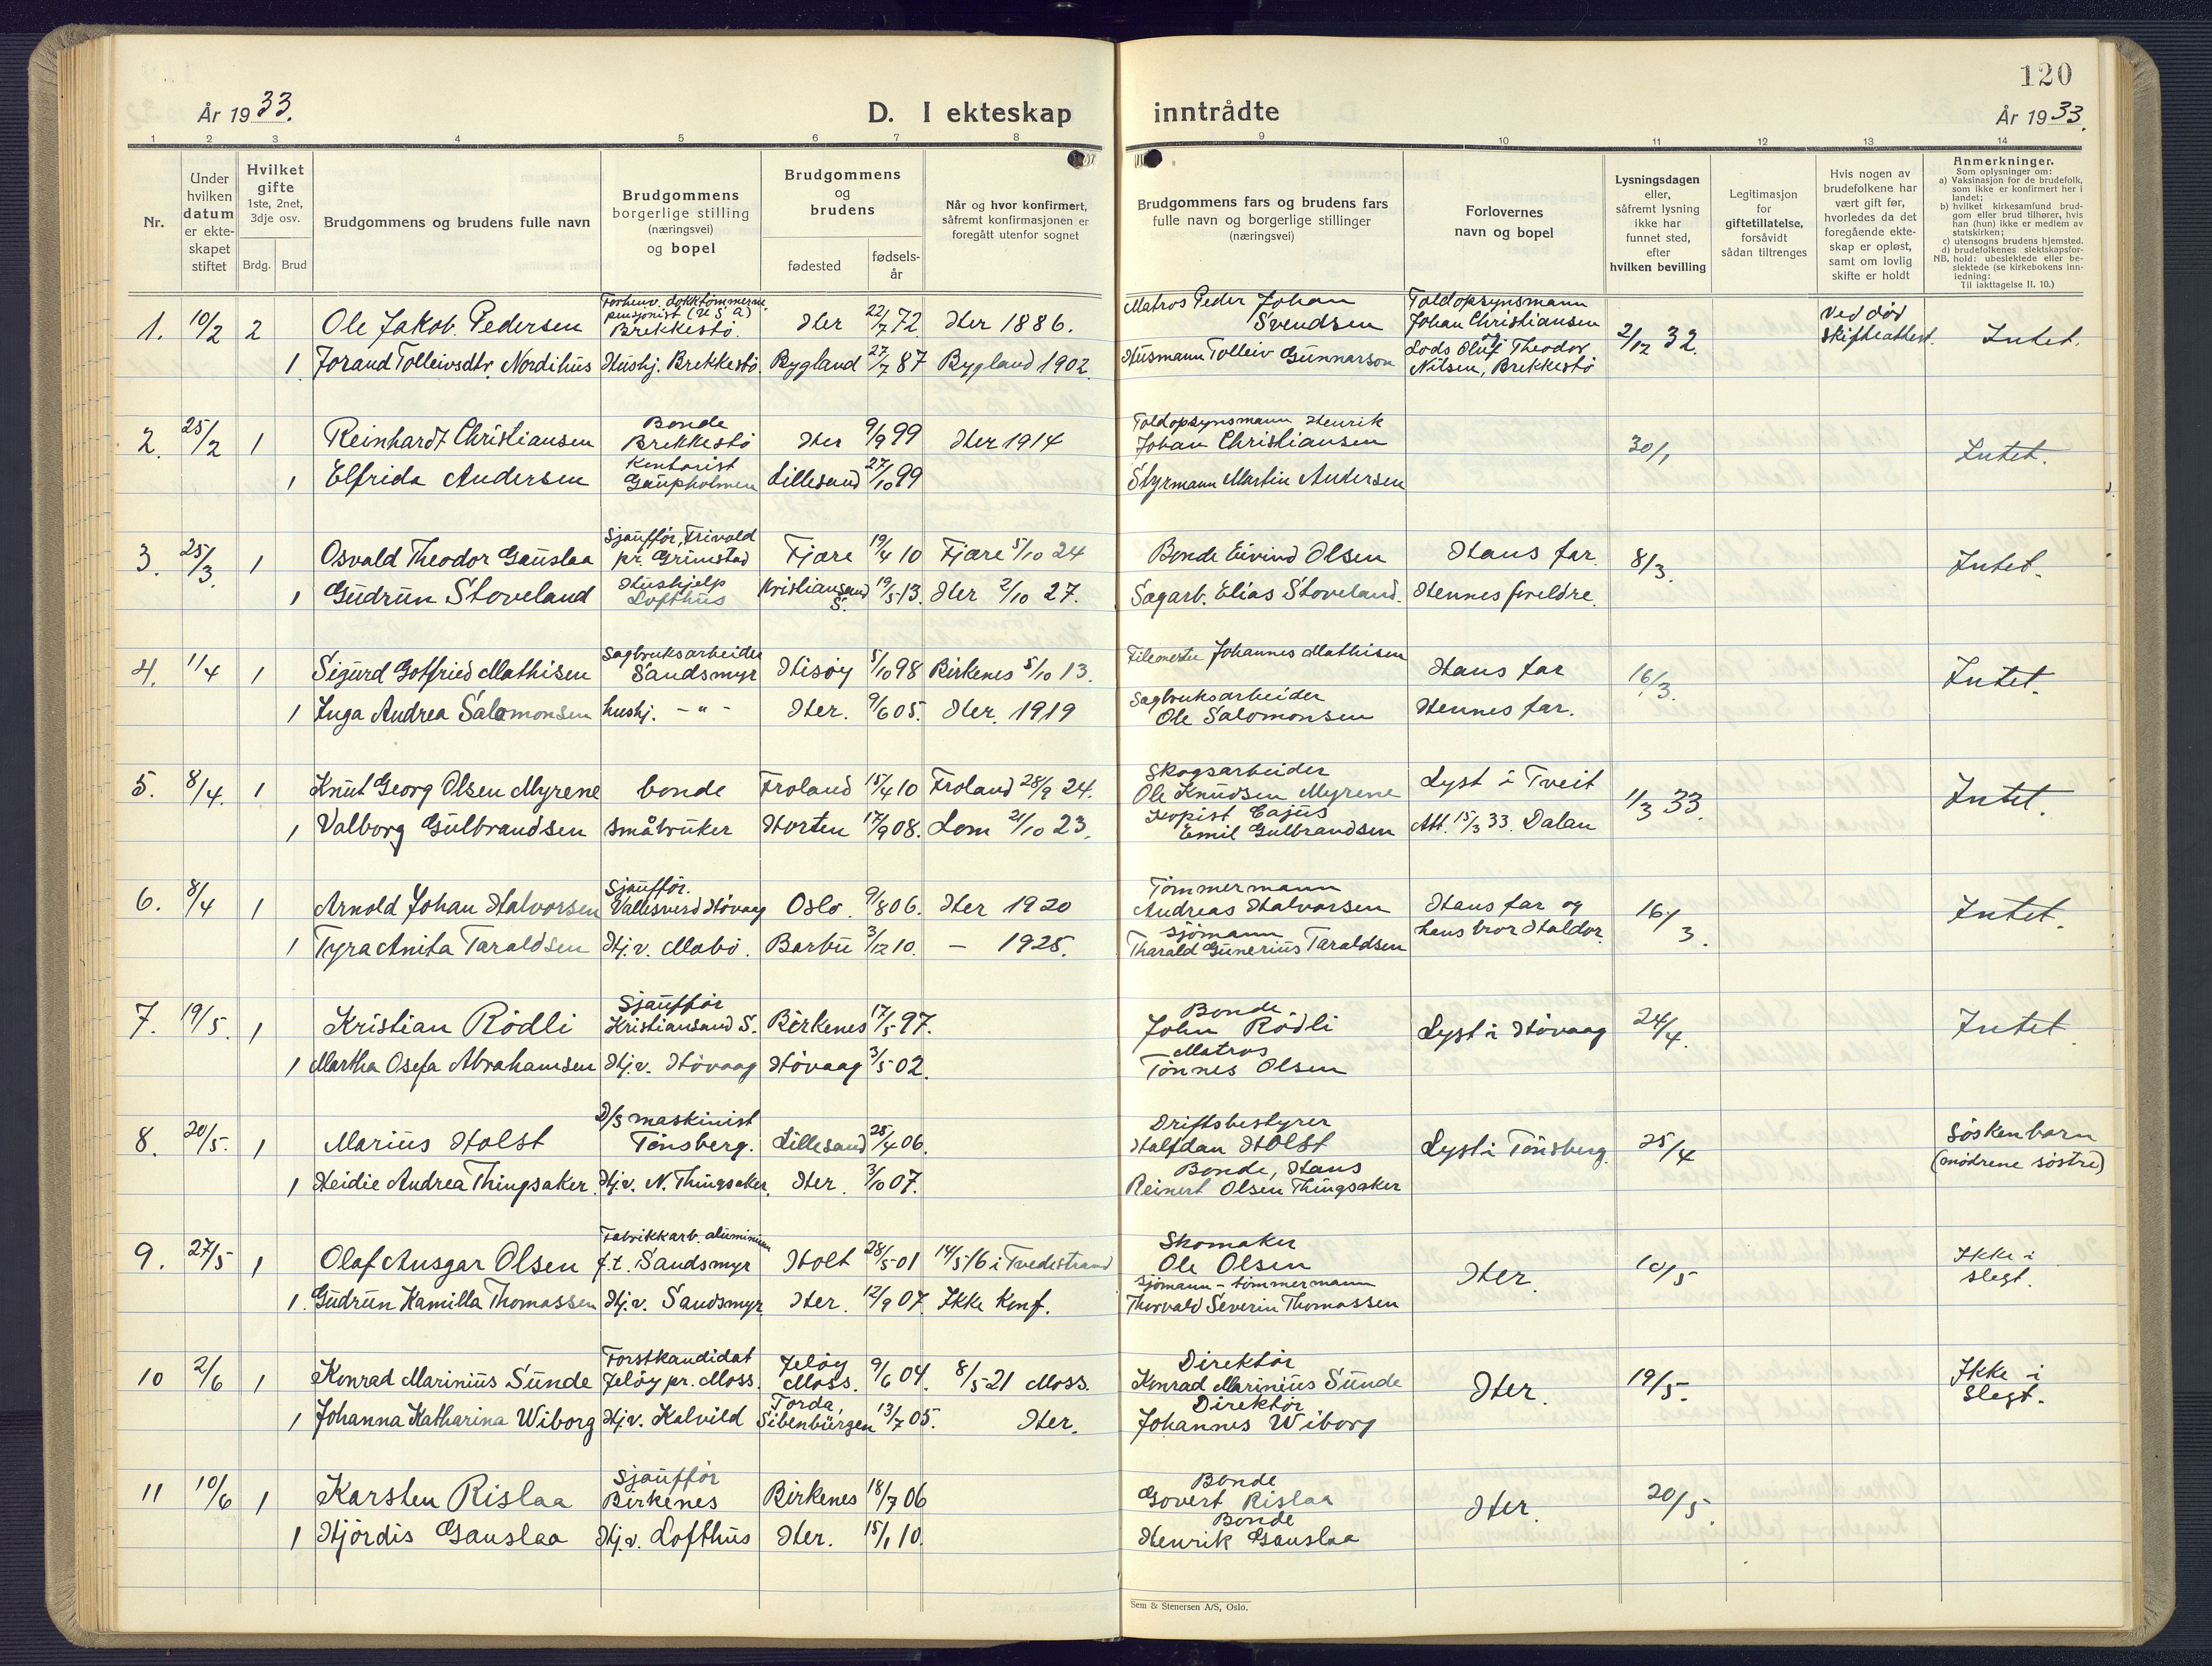 120
År 1933.
D. I ekteskap inntrådte
År 1933.
1 2 3 4 5 6 7 8 9 10 11 12 13 14
Nr.
Under hvilken datum er ekteskapet stiftet
Hvilket gifte 1ste, 2net, 3dje osv.
Brdg. Brud
Brudgommens og brudens fulle navn
Brudgommens borgerlige stilling (næringsvei) og bopel
Brudgommens og brudens
fødested
fødsels-år
Når og hvor konfirmert, såfremt konfirmasjonen er foregått utenfor sognet
Brudgommens fars og brudens fars fulle navn og borgerlige stillinger (næringsvei)
Forlovernes navn og bopel
Lysningsdagen eller, såfremt lysning ikke har funnet sted, efter hvilken bevilling
Legitimasjon for giftetillatelse, forsåvidt sådan tiltrenges
Hvis nogen av brudefolkene har vært gift før, hvorledes da det foregående ekteskap er opløst, samt om lovlig skifte er holdt
Anmerkninger.
Som oplysninger om:
a) Vaksinasjon for de brudefolk, som ikke er konfirmert her i landet;
b) hvilket kirkesamfund brudgom eller brud tilhører, hvis han (hun) ikke er medlem av statskirken;
c) utensogns brudens hjemsted.
d) brudefolkenes slektskapsforhold: ubeslektede eller beslektede (se kirkebokens innledning:
NB.
Til iakttagelse II. 10.)
1. 10/2 2 Ole Jakob Pedersen Forhenv. dokktømmerm. pensjonist (U S A) Brekkestø Her 22/7 72 Her 1886. Matros Peder Johan Svendsen Toldopsynsmann Johan Christiansen 2/12 32. Ved død skifteattest. Intet.
1 Jorand Tolleivsdtr. Nordihus Hushj. Brekkestø. Bygland 27/7 87 Bygland 1902. Husmann Tolleiv Gunnarson og Lods Oluf Theodor Nilsen, Brekkestø
2. 25/2 1 Reinhardt Christiansen Bonde Brekkestø Her 9/9 99 Her 1914 Toldopsynsmann Henrik Johan Christiansen 30/1 Intet.
1 Elfrida Andersen Kontorist Gaupholmen Lillesand 27/10 99 Styrmann Martin Andersen
3. 25/3 1 Osvald Theodor Gauslaa Sjaufför, Frivold pr. Grimstad Fjære 19/4 10 Fjære 5/10 24 Bonde Eivind Olsen Hans far. 8/3. Intet.
1 Gudrun Stoveland Hushjelp Lofthus Kristiansand S. 19/5 13. Her 2/10 27. Sagarb. Elias Stoveland. Hennes foreldre.
4. 11/4 1 Sigurd Gotfried Mathisen Sagbruksarbeider Sandsmyr Hisøy 5/10 98 Birkenes 5/10 13. Filemester Johannes Mathisen Hans far 16/3. Intet.
1 Inga Andrea Salomonsen hushj. - " - Her. 9/6 05. Her. 1919 Sagbruksarbeider Ole Salomonsen Hennes far.
5. 8/4. 1 Knut Georg Olsen Myrene bonde Froland 15/4 10 Froland 28/9 24. Skogsarbeider Ole Knudsen Myrene Lyst i Tveit 1/3 33. Intet.
1 Valborg Gulbrandsen småbruker Horten 17/9 08. Lom 21/10 23. Kopist Cajus Emil Gulbrandsen Att. 15/3 33. Dalan
6. 8/4 1 Arnold Johan Halvorsen Sjaufför. Vallesverd Høvaag Oslo. 9/8 06. Her 1920 Tømmermann Andreas Halvorsen Hans far og hans bror Haldor. 16/3. Intet.
1 Tyra Anita Taraldsen Hj.v. Mobø. Barbu 3/12 10. - 1925. Sjømann Tharald Gunerius Taraldsen
7. 19/5. 1 Kristian Rödli Sjaufför Kristiansand S. Birkenes 17/5 97. Bonde John Rödli Lyst i Høvaag 24/4. Intet.
1 Martha Osefa Abrahamsen Hj.v. Høvaag Høvaag 3/5 02. Matros Tønnes Olsen
8. 20/5. 1 Marius Holst D/S maskinist Tønsberg. Lillesand 25/4 06. Driftsbestyrer Halfdan Holst Lyst i Tønsberg. 25/4 Søskenbarn (mødrene søstre)
1 Heidie Andrea Thingsaker. Hj.v. N. Thingsaker. Her. 3/10 07. Bonde, Hans Reinert Olsen Thingsaker
9. 27/5 1 Olaf Ansgar Olsen Fabrikkarb. aluminium f.t. Sandsmyr Holt 28/5 01 14/5 16 i Tvedestrand Skomaker Ole Olsen Her. 10/5 Ikke i slegt.
1. Gudrun Kamilla Thomassen Hj.v. Sandsmyr. Her. 12/9 07. Ikke konf. Sjømann - tømmermann Thorvald Severin Thomassen
10 2/6 1 Konrad Marinius Sunde Forstkandidat Jeløy pr. Moss. Jeløy Moss. 9/6 04. 8/5 21 Moss. Direktør Konrad Marinius Sunde Her. 19/5. Ikke i slegt.
1 Johanna Katharina Wiborg Hj.v. Kalvild Torda, Sibenbürgen 13/7 05. Her. Direktør Johannes Wiborg
11 10/6 1 Karsten Rislaa Sjaufför Birkenes Birkenes 18/7 06 Bonde Govert Rislaa Her. 20/5.
1 Hjørdis Gauslaa Hj.v. Lofthus Her. 15/1 10. Bonde Henrik Gauslaa
Sem & Stenersen A/S, Oslo.